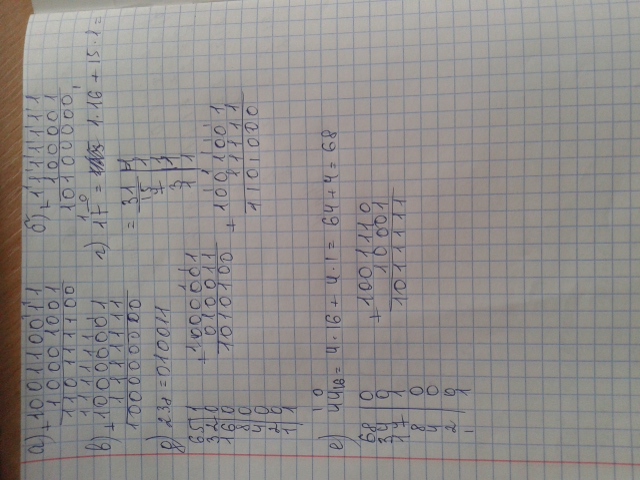 а) + 10011 0011
1000 1001
110111100
б) + 1111111
100001
10100000
в) + 10000001
1111111
100000000
г) 1F = 1·16 + 15·1 =
= 31
+ 1001001
11111
1101000
д) 23₈ = 010011
65 1
32 0
16 0
8 0
4 0
2 0
1 1
+ 1000001
010011
1010100
е) 44₁₆ = 4·16 + 4·1 = 64 + 4 = 68
68 0
34 0
17 1
8 0
4 0
2 0
1 1
+ 1001110
10001
1011111